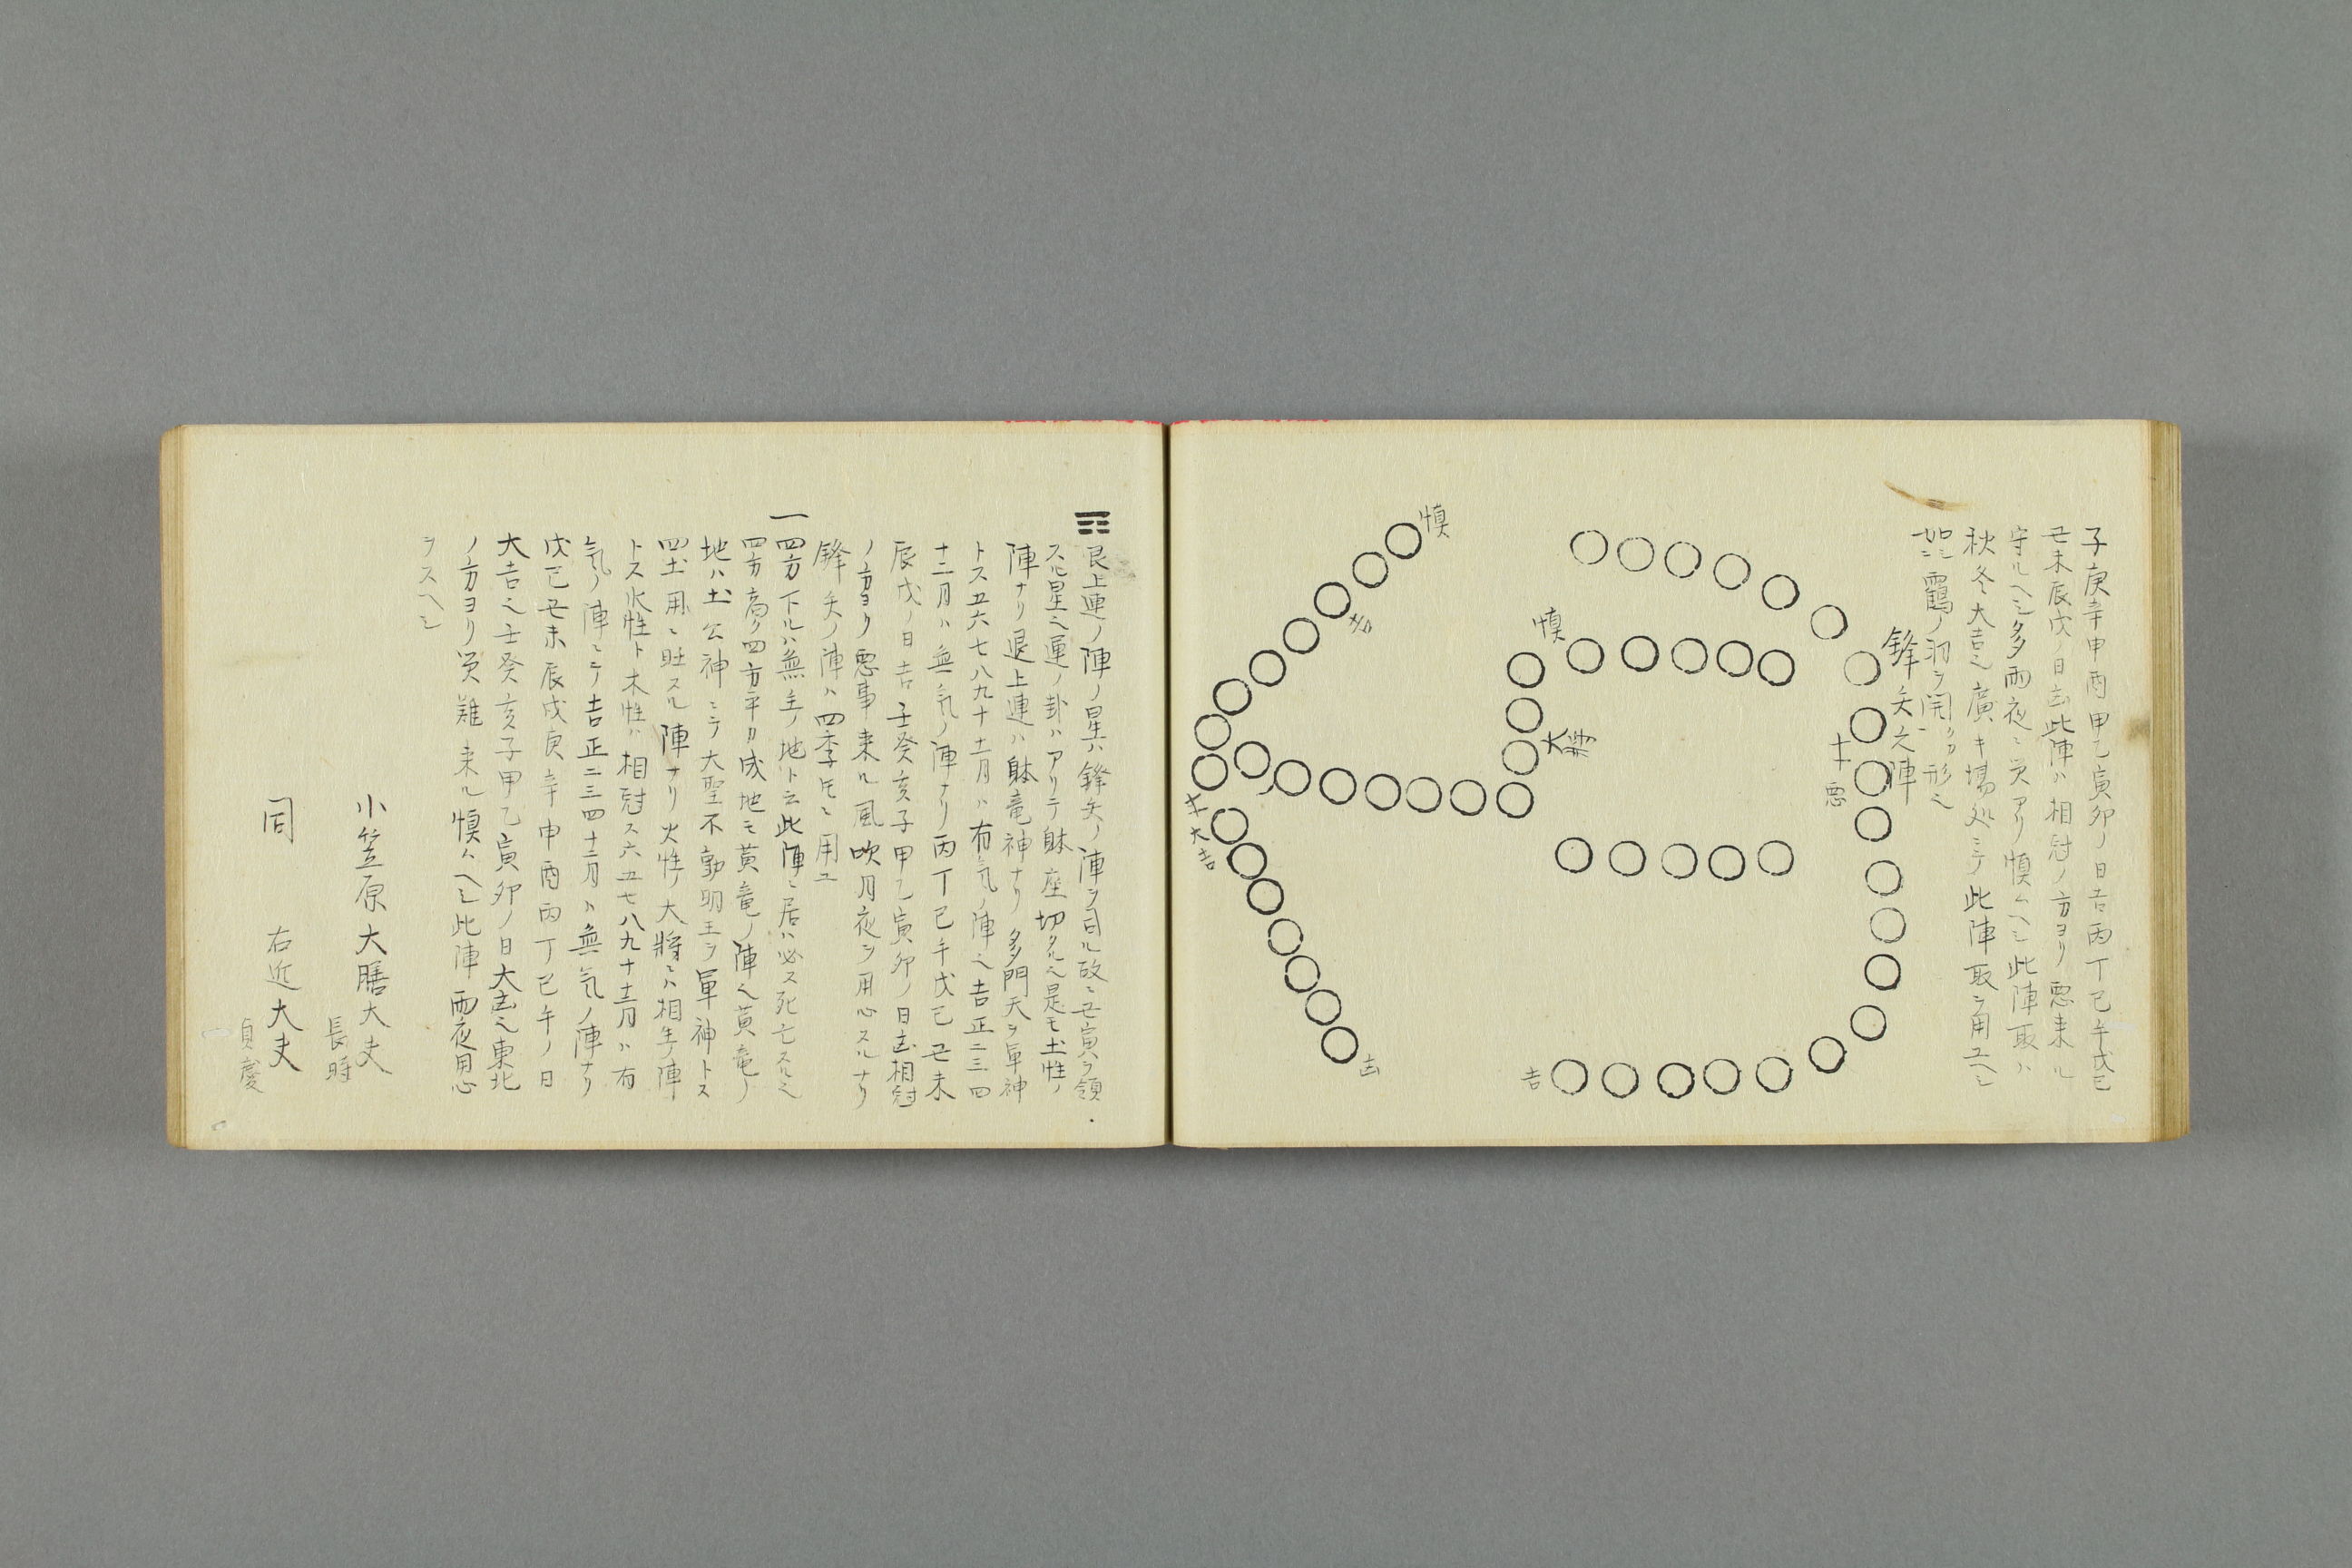 子庚辛申酉甲乙寅卯ノ日吉丙丁巳午戊己
丑未辰戌ノ日凶此陣ハ相尅ノ方ヨリ悪来ル
守ルヘシ多雨夜ニ災アリ慎ムヘシ此陣取ハ
秋冬大吉也廣キ場処ニテ此陣取ヲ用ユヘシ
如シ靏ノ羽ヲ開クカ形也
鋒矢之陣
十悪
慎
大将
吉
慎
大吉
凶
艮上連ノ陣ノ星ハ鋒矢ノ陣ヲ司ル故ニ丑寅ヲ領
スル星也連ノ卦ハアリテ躰座切タル也是モ土性ノ
陣ナリ退上連ハ躰竜神ナリ多門天ヲ軍神
トス五六七八九十十一月ハ有気ノ陣也吉正二三四
十二月ハ無気ノ陣ナリ丙丁巳午戊己丑未
辰戌ノ日吉壬癸亥子甲乙寅卯ノ日凶相尅
ノ方ヨリ悪事来ル風吹月夜ヲ用心スルナリ
鋒矢ノ陣ハ四季モニ用ユ
一四方下ルハ無主ノ地ト云此陣ニ居ハ必ス死亡スル也
四方高ク四方平カ成地モ黄竜ノ陣也黄竜ノ
地ハ土公神ニテ大聖不動明王ヲ軍神トス
四土用ニ旺スル陣ナリ火性ノ大将ニハ相生ノ陣
トス水性ト木性ハ相尅ス六五七八九十十一月ハ有
気ノ陣ニテ吉正二三四十二月ハ無気ノ陣ナリ
戊己丑未辰戌庚辛申酉丙丁巳午ノ日
大吉也壬癸亥子甲乙寅卯ノ日大凶也東北
ノ方ヨリ災難来ル慎ムヘシ此陣雨夜用心
ヲスヘシ
小笠原大膳大夫
長時
同 右近大夫
貞慶